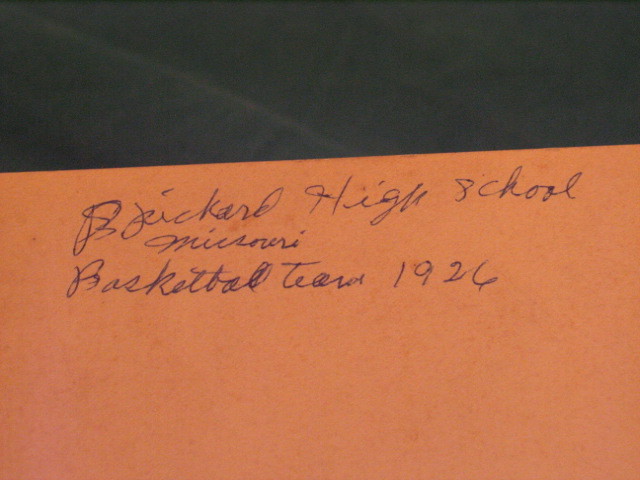 High School
Missouri
Basketball Team 1926